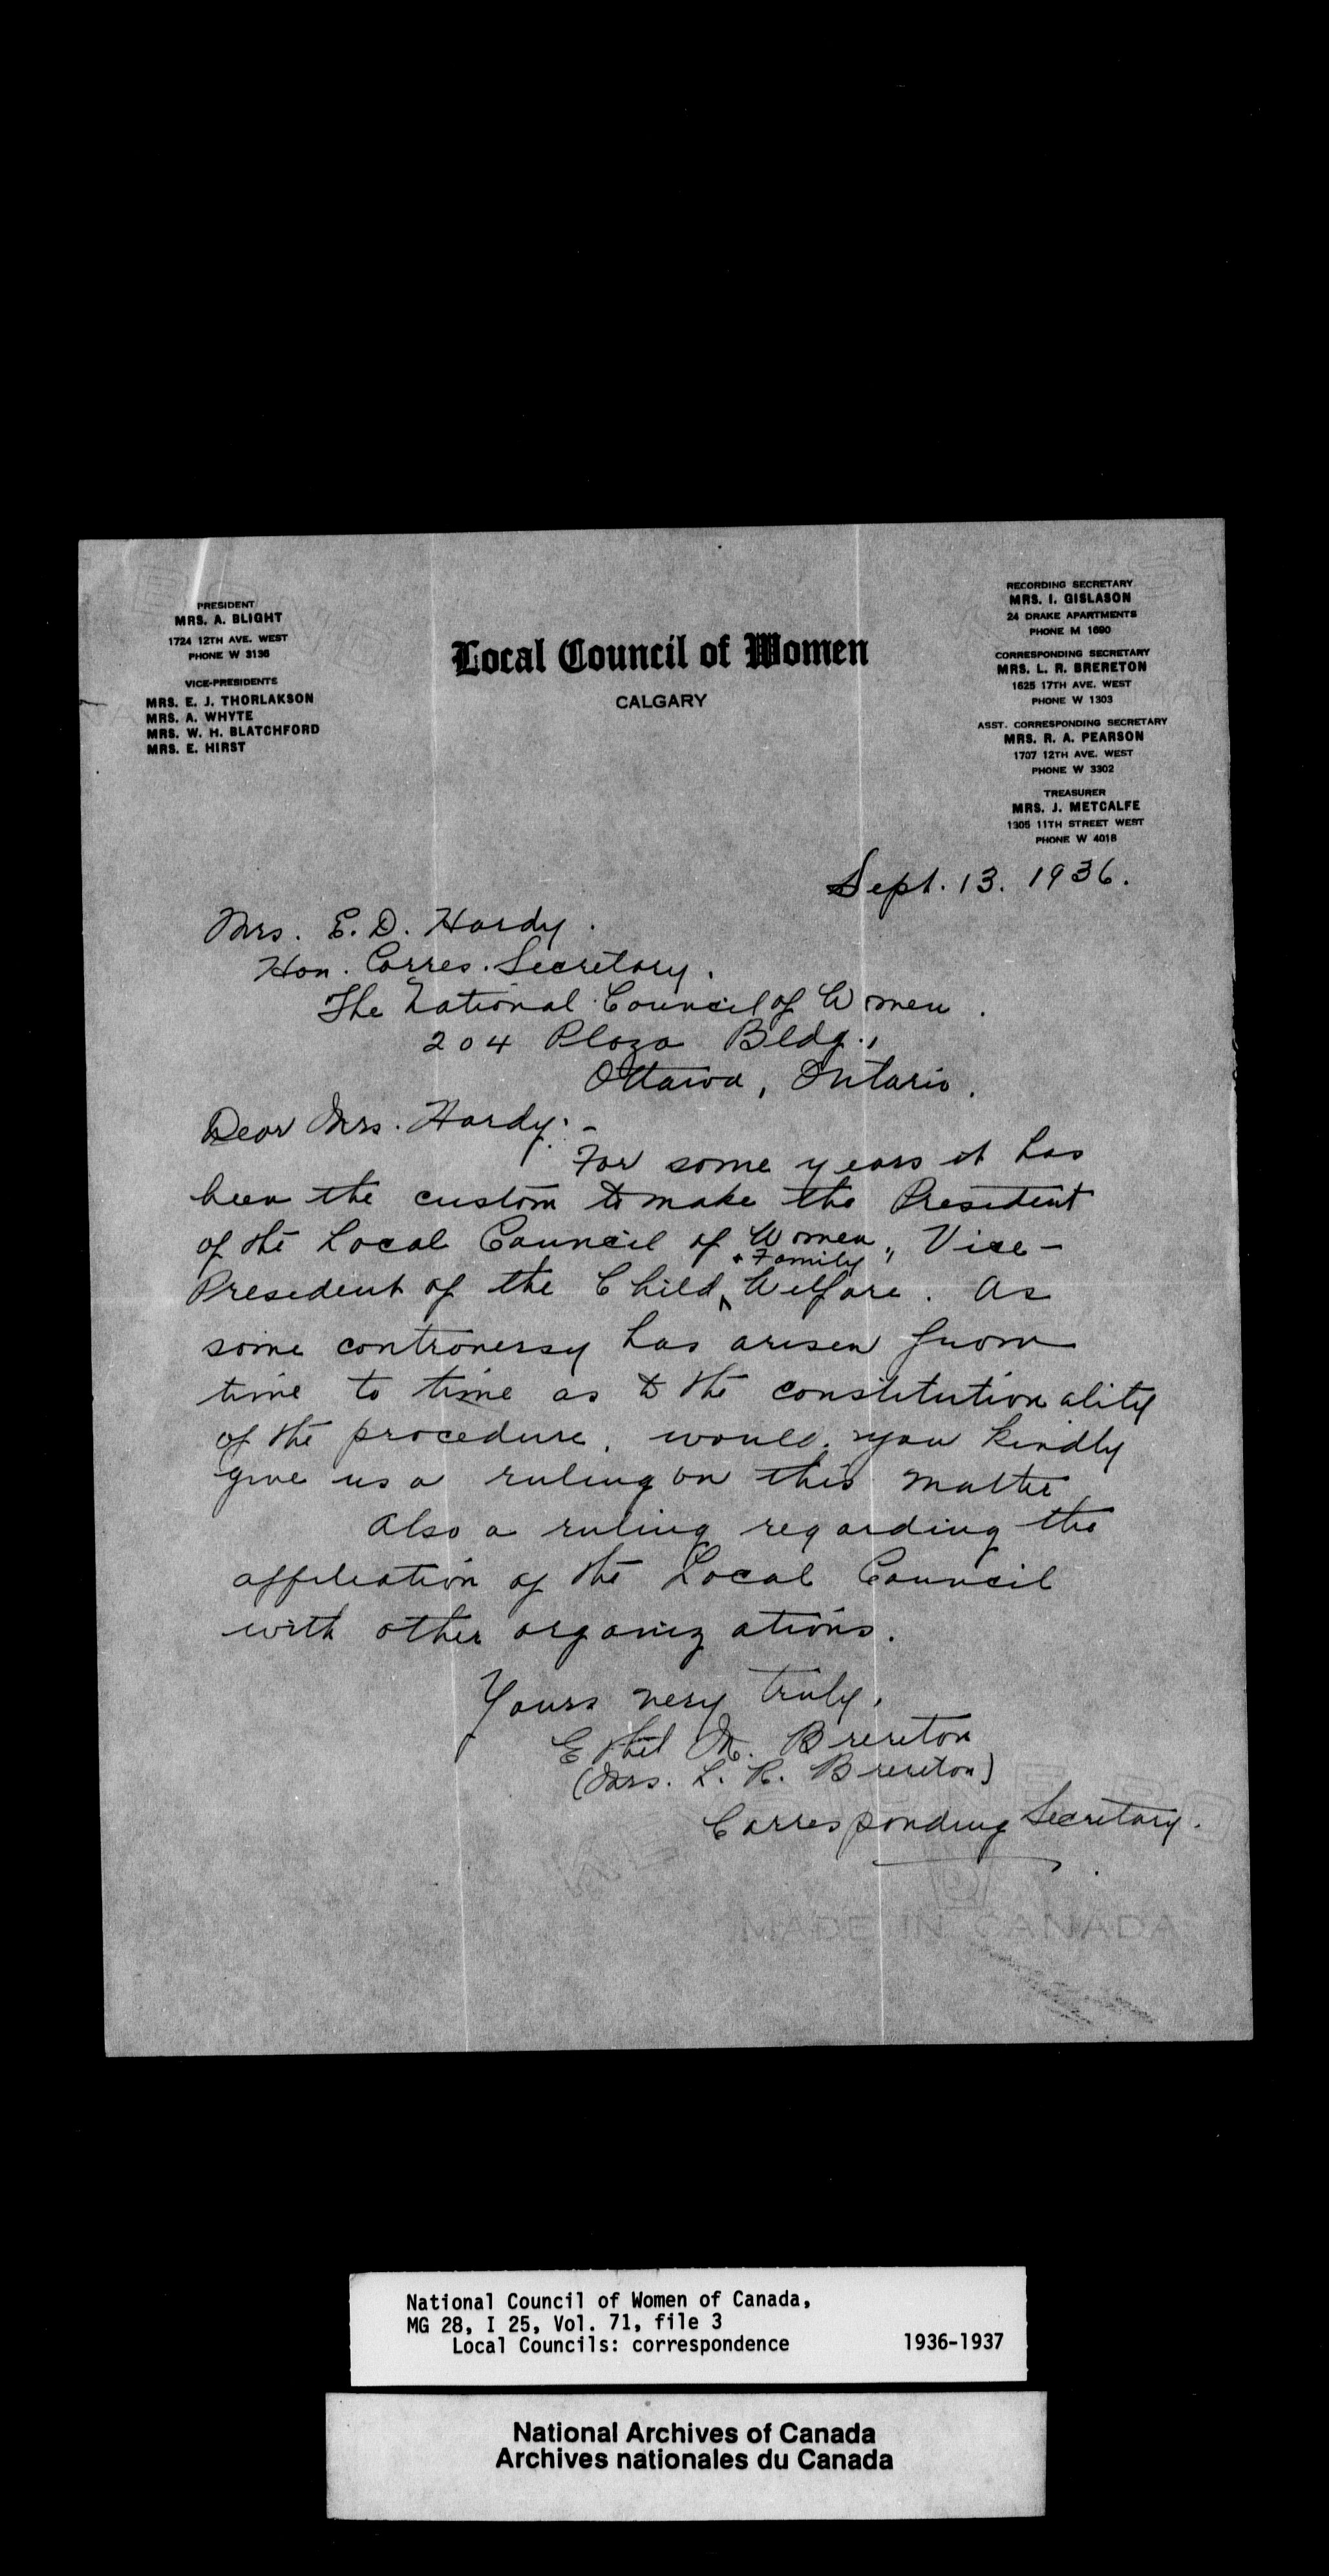 PRESIDENT
MRS. A. BLIGHT
1724 12TH AVE. WEST
PHONE W 3136
VICE-PRESIDENTS
MRS. E. J. THORLAKSON
MRS. A. WHYTE
MRS. W. H. BLATCHFORD
MRS. E. HIRST
Local Council of Women
CALGARY
RECORDING SECRETARY
MRS. I. GISLASON
24 DRAKE APARTMENTS
PHONE M 1690
CORRESPONDING SECRETARY
MRS. L. R. BRERETON
1625 17TH AVE. WEST
PHONE W 1303
ASST. CORRESPONDING SECRETARY
MRS. R. A. PEARSON
1707 12TH AVE. WEST
PHONE W 3302
TREASURER
MRS. J. METCALFE
1305 11TH STREET WEST
PHONE W 4018
Sept. 13. 1936.
Mrs. E. D. Hardy.
Hon. Corres. Secretary.
The National Council of Women.
204 Plaza Bldg.,
Ottawa, Ontario.
Dear Mrs. Hardy:-
For some years it has
been the custom to make the President
of the Local Council of Women, Vice-
+ Family
President of the Child Welfare. As
some controversy has arisen from
time to time as to the constitutionality
of the procedure, would you kindly
give us a ruling on this matter
Also a ruling regarding the
affiliation of the Local Council
with other organizations.
Yours very truly,
Ethel M. Brereton
(Mrs. L. R. Brereton)
Corresponding Secretary.
MADE IN CANADA
National Council of Women of Canada,
MG 28, I 25, Vol. 71, file 3
Local Councils: correspondence 1936-1937
National Archives of Canada
Archives nationales du Canada